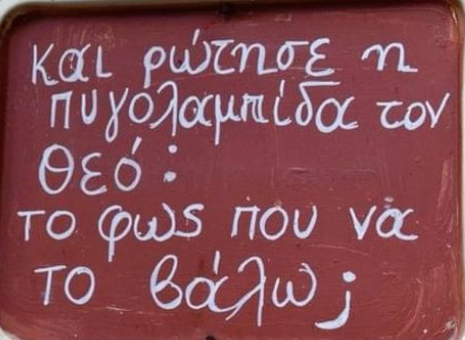 και ρώτησε η
πυγολαμπίδα τον
θεό:
το φως που να
το βάλω;